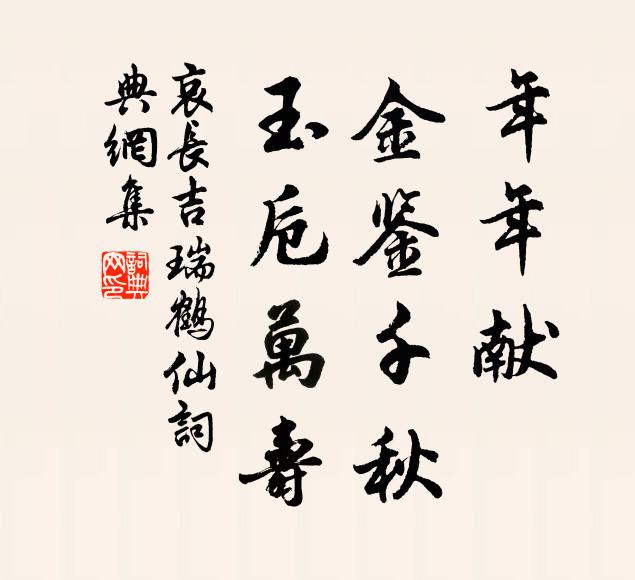 年年献
金鉴千秋
玉卮萬壽
哀長吉瑞鶴仙詞
典網集
詞典
网印